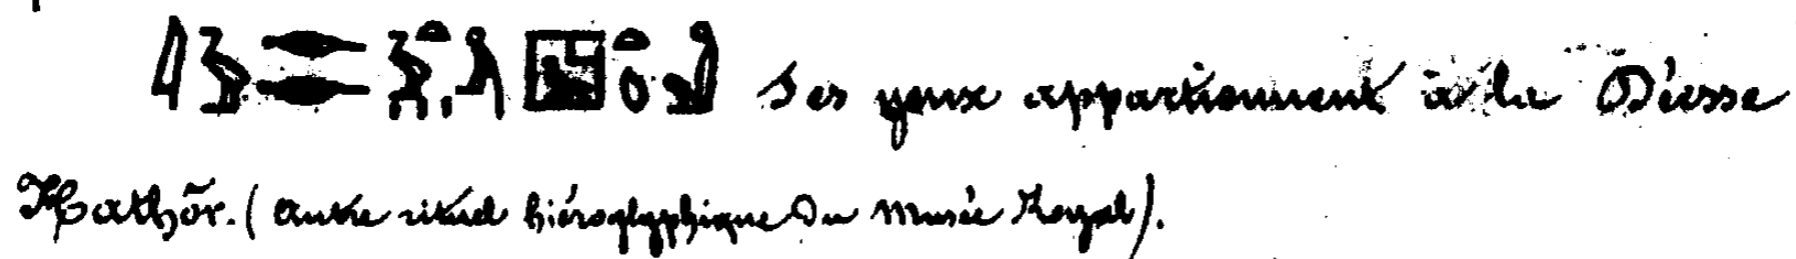 Ses yeux appartiennent à la Déesse
Hathôr. (autre rituel hiéroglyphique du Musée Royal).